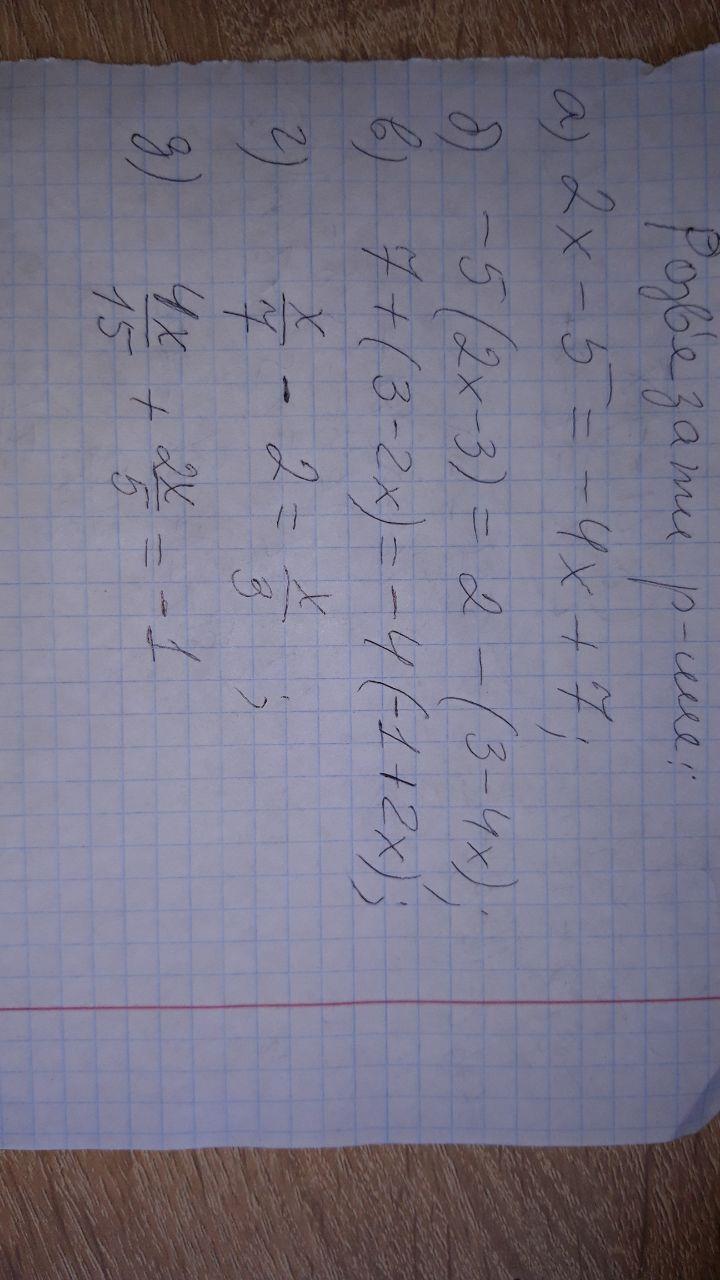 Розв'язати р-ння:
а) 2x - 5 = - 4x + 7;
б) - 5 (2x - 3) = 2 - (3 - 4x);
в) 7 + (3 - 2x) = - 4 (-1 + 2x);
г) x/7 - 2 = x/3;
д) 4x/15 + 2x/5 = -1